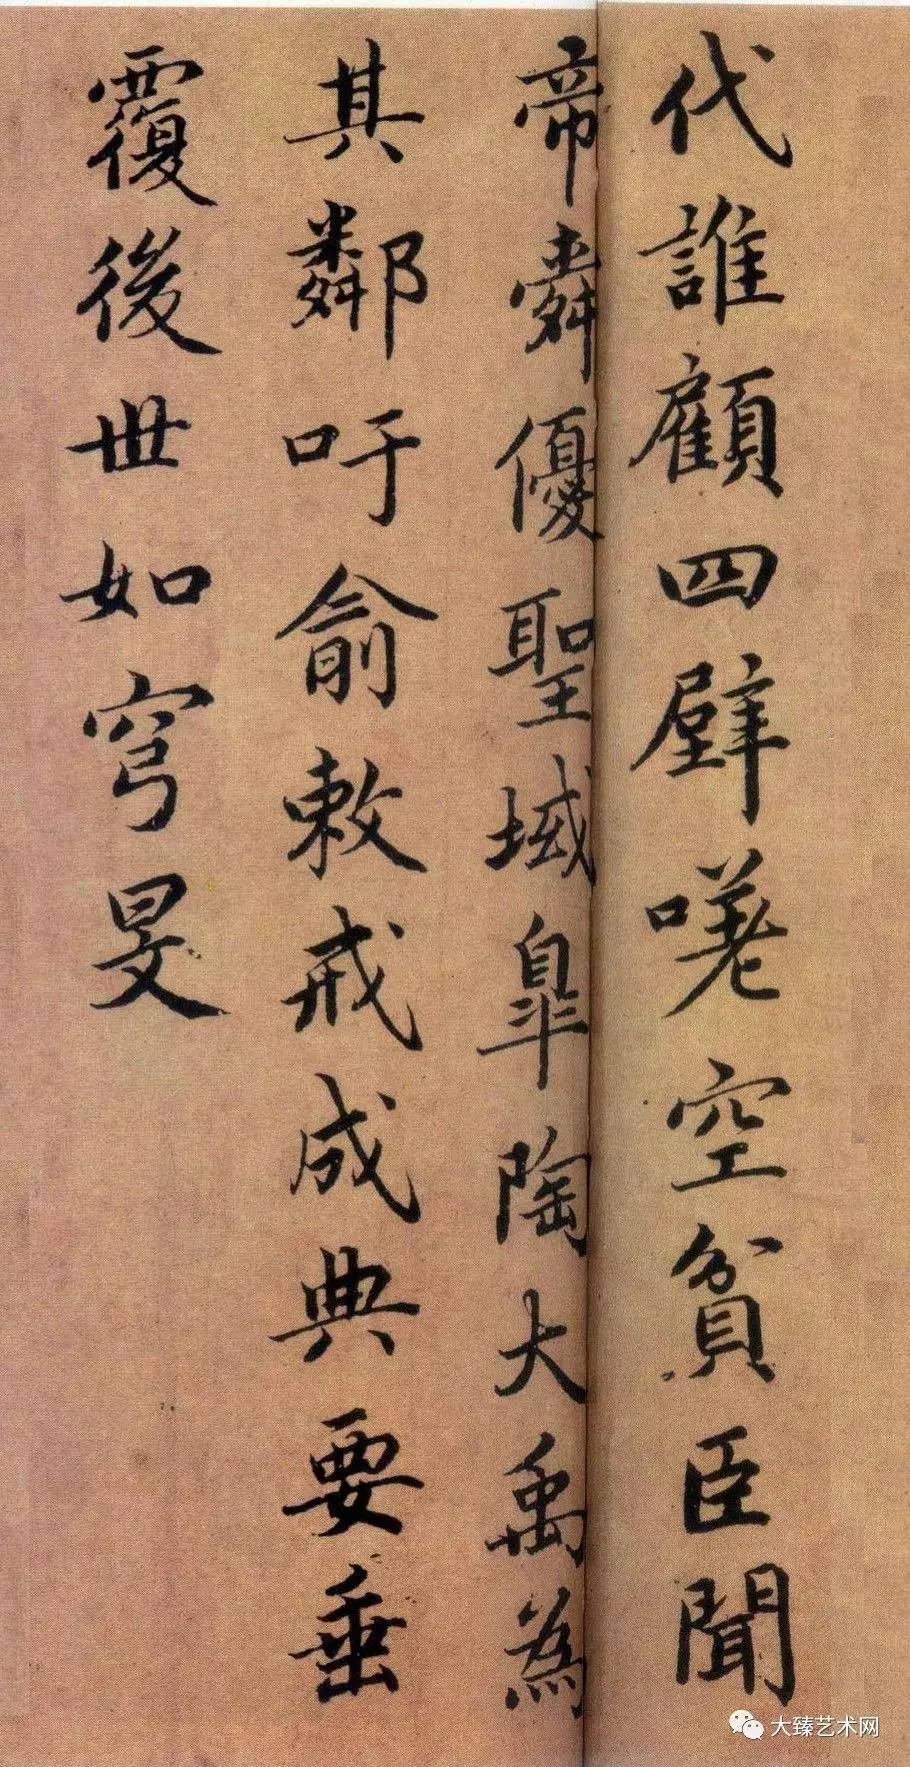 代誰顧四壁嗟空貧臣聞
帝舜優聖域皐陶大禹為
其鄰吁俞敕戒成典要垂
覆後世如穹旻
大臻艺术网